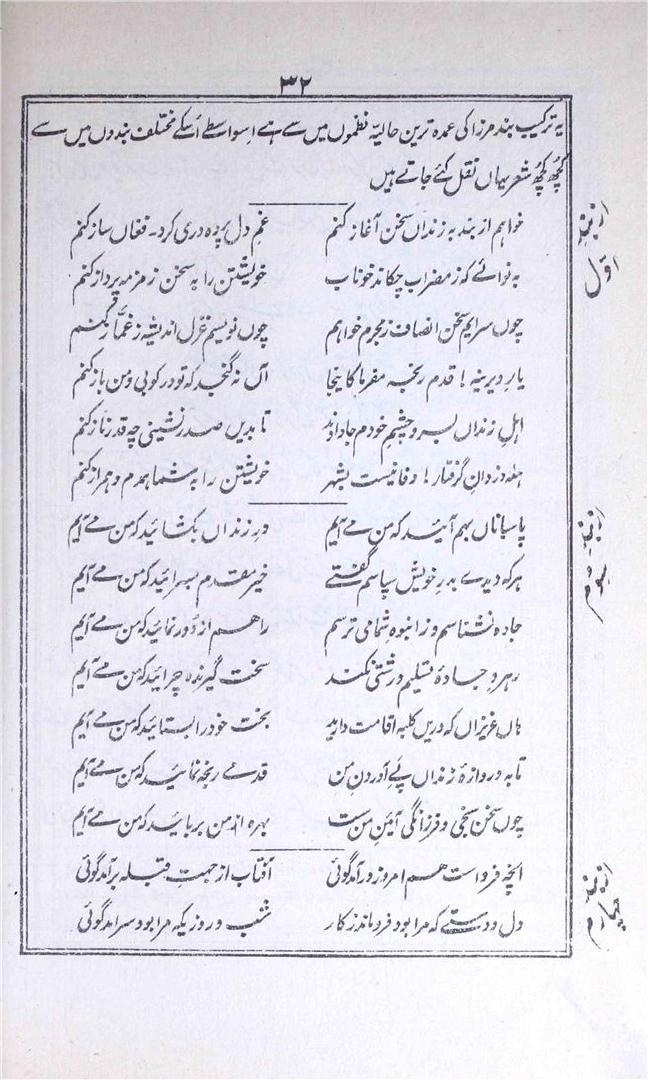 ۳۲
یہ ترکیب بند مرزا کی عمدہ ترین حالیہ نظموں میں سے ہے اسواسطے اُسکے مختلف بندوں میں سے
کچھ کچھ شعر یہاں نقل کئے جاتے ہیں
از بند اوّل
خواہم از بند بہ زنداں سخن آغاز کنم غمِ دل پردہ دری کرد۔ فغاں ساز کنم
بہ نوائے کہ ز مضراب چکاند خوناب خویشتن را بہ سخن زمزمہ پرداز کنم
چوں سرایم سخن انصاف ز مجرم خواہم چوں نویسم غزل اندیشہ ز غمّاز کنم
یارِ دیرینہ! قدم رنجہ مفرما کاینجا آں نہ گنجد کہ تو در کوبی و من باز کنم
اہلِ زنداں بسر و چشمِ خودم جا دادند تا بدیں صدر نشینی چہ قدر ناز کنم
ہلہ دزدانِ گرفتار! وفا نیست بشہر خویشتن را بہ شما ہمدم و ہمراز کنم
از بند سوم
پاسباناں بہم آئید کہ من مے آیم درِ زنداں بکشائید کہ من مے آیم
ہر کہ دیدے بدرِ خویش سپاسم گفتے خیر مقدم بسرائید کہ من مے آیم
جادہ نشناسم و ز انبوہِ شما می ترسم راہم از دُور نمائید کہ من مے آیم
رہروِ جادۂ تسلیم درشتی نکند سخت گیرندہ چرائید کہ من مے آیم
ہاں عزیزاں کہ دریں کلبہ اقامت دارید بختِ خود را بستائید کہ من مے آیم
تا بہ دروازۂ زنداں پئے آوردنِ من قدمے رنجہ نمائید کہ من مے آیم
چوں سخن سنجی و فرزانگی آئینِ من ست بہرہ از من بربائید کہ من مے آیم
از بند چہارم
انچہ فرداست ہم امروز در آمد گوئی آفتاب از جہتِ قبلہ بر آمد گوئی
دل و دستے کہ مرا بود فروماند ز کار شب و روزیکہ مرا بود سر آمد گوئی